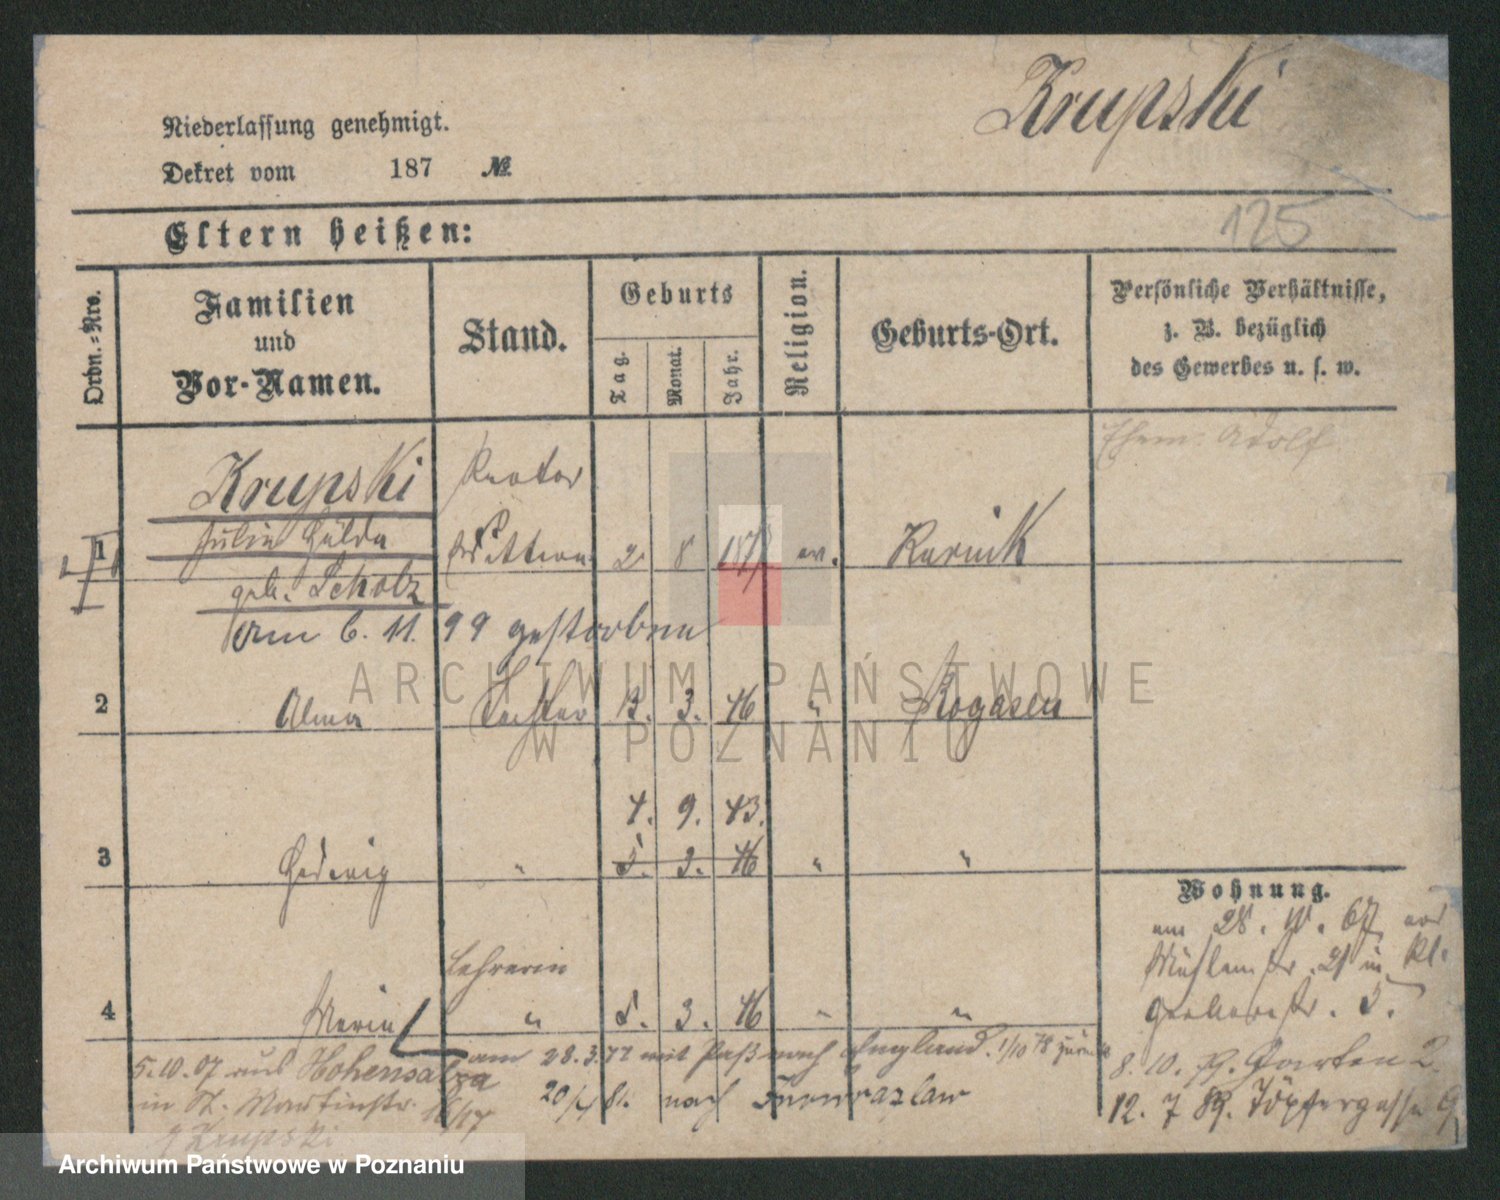 Krupski
Niederlassung genehmigt.
Dekret vom 187 №
125
Eltern heißen:
Ordn.-Nro.
Familien
und
Vor-Namen.
Stand.
Geburts
Tag.
Monat.
Jahr.
Religion.
Geburts-Ort.
Persönliche Verhältnisse,
z. B. bezüglich
des Gewerbes u. s. w.
Ehem. Adolf
Krupski Rektor
1 Julie Hulda Wittwe 2 8 ev. Kurnik
geb. Scholz
am 6. 11. 99 gestorben
ARCHIWUM PAŃSTWOWE
W POZNANIU
2 Alma Tochter 3. 46 " Rogasen
4. 9. 43.
3 Hedwig " 5. 3. 46 " "
Wohnung.
am 28. 67
Mühlenstr. 21 in kl.
Gerberstr. 5.
8. 10. Garten 2
12. 7 89. Töpfergasse 9
Lehrerin
4 Marie " 5. 3. 46 " "
am 28.3.77 mit Paß nach England. 1/10 78 zurück
20/4 81. nach Inowrazlaw
5.10.07 aus Hohensalza
in St. Martinstr. 16/17
Krupski
Archiwum Państwowe w Poznaniu